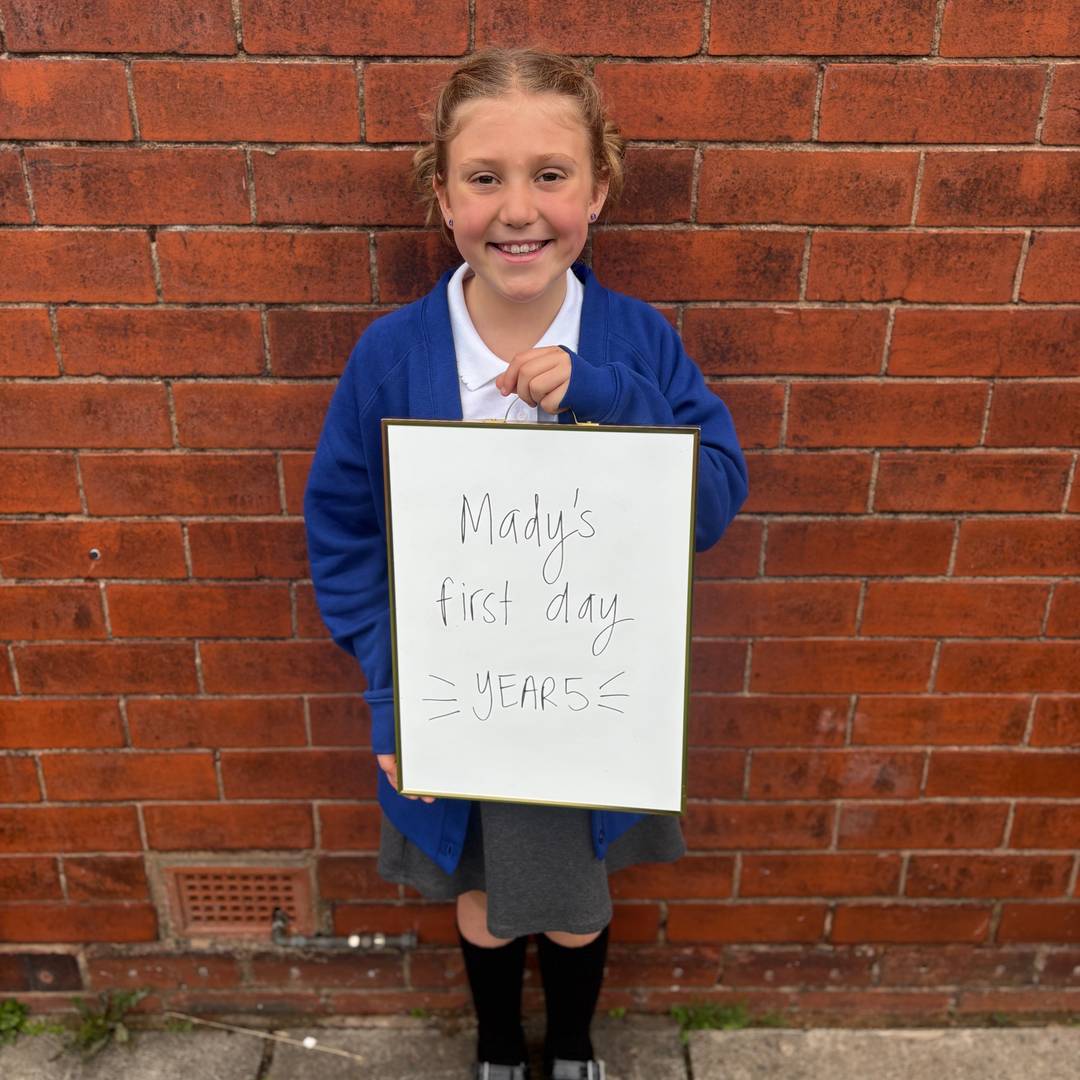 Mady's
first day
YEAR 5